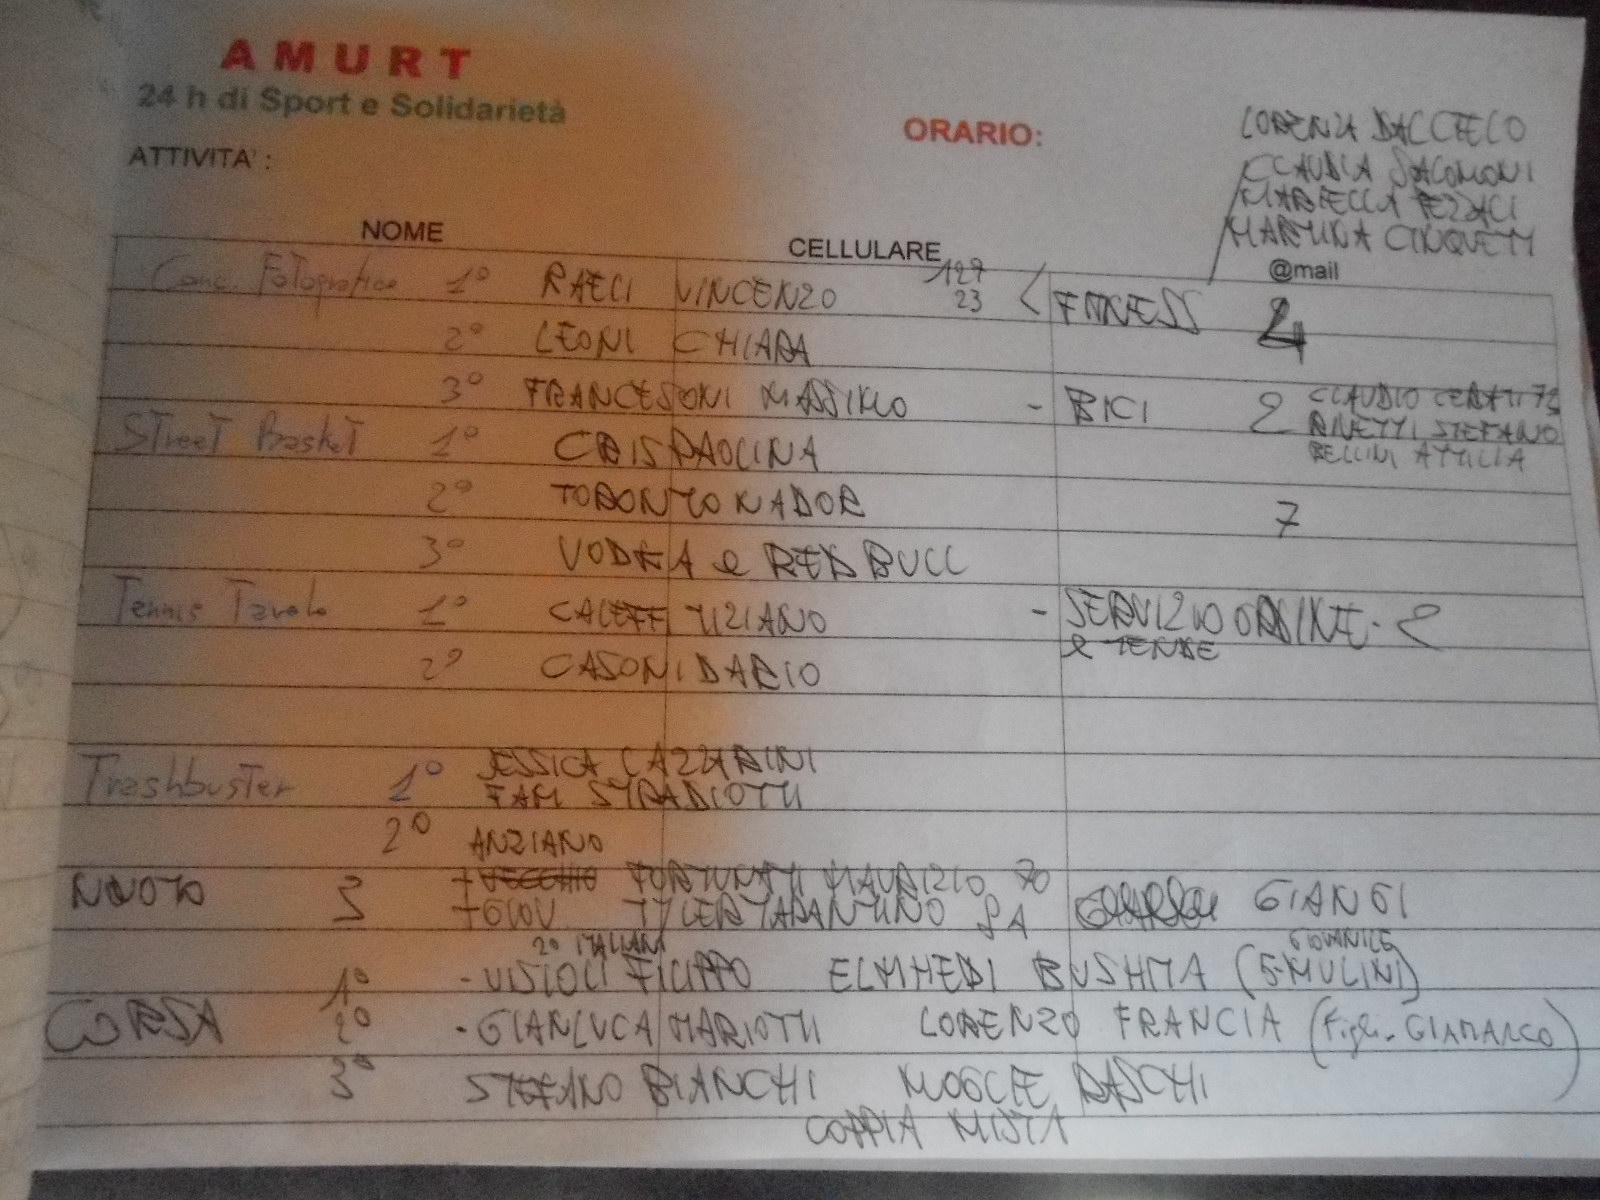 AMURT
24 h di Sport e Solidarietà
ORARIO:
LORENZA DALCIELO
CLAUDIA SALOMONI
MARTINA CINQUETTI
ATTIVITA' :
NOME
CELLULARE
@mail
Conc. Fotografico 1° RAECI VINCENZO 127 23 < FITNESS 4
2° LEONI CHIARA
3° FRANCESONI MASSIMO - BICI 2 CLAUDIO CERATI 73
BINETTI STEFANO
BELLINI ATTILIA
Street Basket 1° CRISPAOLINA
2° TORONTO NADOR 7
3° VODKA e RED BULL
Tennis Tavolo 1° CALEFF TIZIANO - SERVIZIO ORDINE - 2
e TENDE
2° CASONI DARIO
Trashbuster 1° JESSICA CAZZARINI
FAM STRADIOTTI
2°
ANZIANO
NUOTO 3 + VECCHIO FORTUNATI MAURIZIO 70
+ GIOV TYLER TARANTINO 8 A GIANGI
2° ITALIANI GIOVANILE
1° - VISIOLI FILIPPO ELMHEDI BUSHTA (5 MULINI)
CORSA 2° - GIANLUCA MARIOTTI LORENZO FRANCIA (figli. GIAMARCO)
3° STEFANO BIANCHI MOGLIE BASCHI
COPPIA MISTA